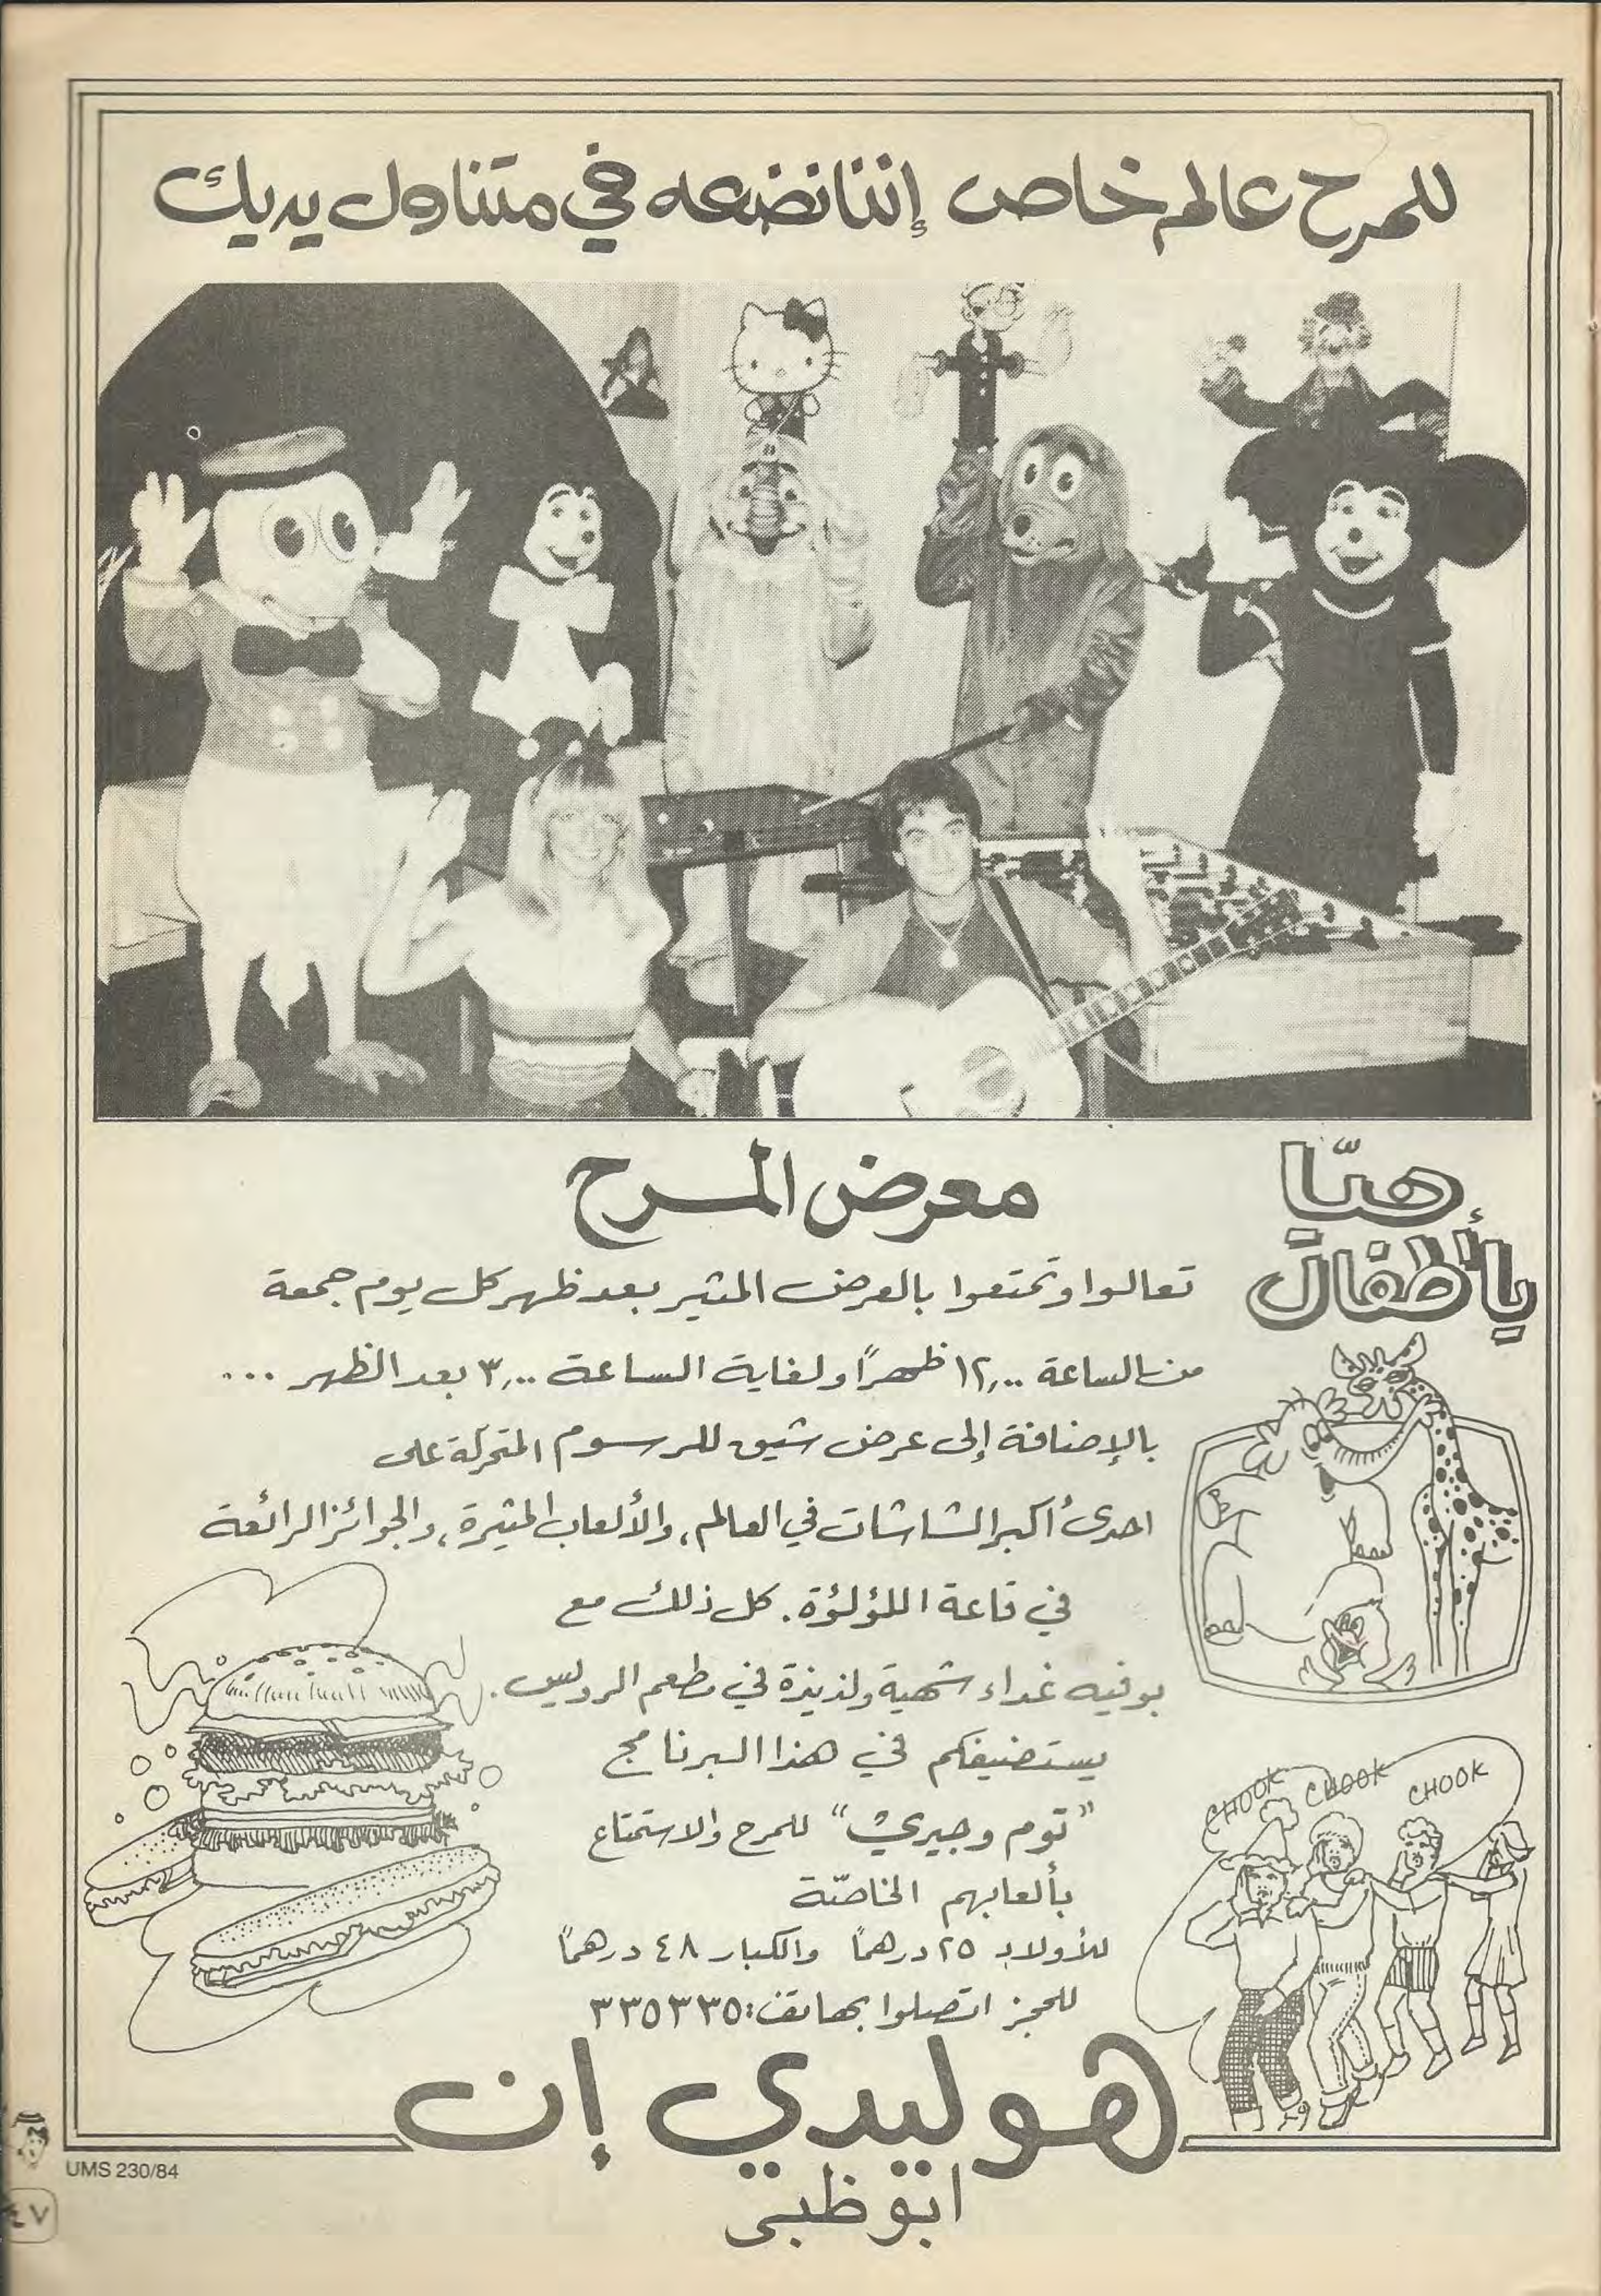 للمرح عالم خاص إننا نضعه في متناول يديك
هيّا
يا أطفال
معرض المرح
تعالوا وتمتعوا بالعرض المثير بعد ظهر كل يوم جمعة
من الساعة ١٢,٠٠ ظهراً ولغاية الساعة ٣,٠٠ بعد الظهر ...
بالإضافة إلى عرض شيق للرسوم المتحركة على
احدى أكبر الشاشات في العالم، والألعاب المثيرة، والجوائز الرائعة
في قاعة اللؤلؤة. كل ذلك مع
بوفيه غداء شهية ولذيذة في مطعم
يستضيفكم في هذا البرنامج
"توم وجيري" للمرح والاستمتاع
بألعابهم الخاصّة
للأولاد ٢٥ درهماً والكبار ٤٨ درهماً
للحجز اتصلوا بهاتف: ٣٣٥٣٣٥
CHOOK CHOOK CHOOK
هوليدي إن
ابوظبي
UMS 230/84
٤٧